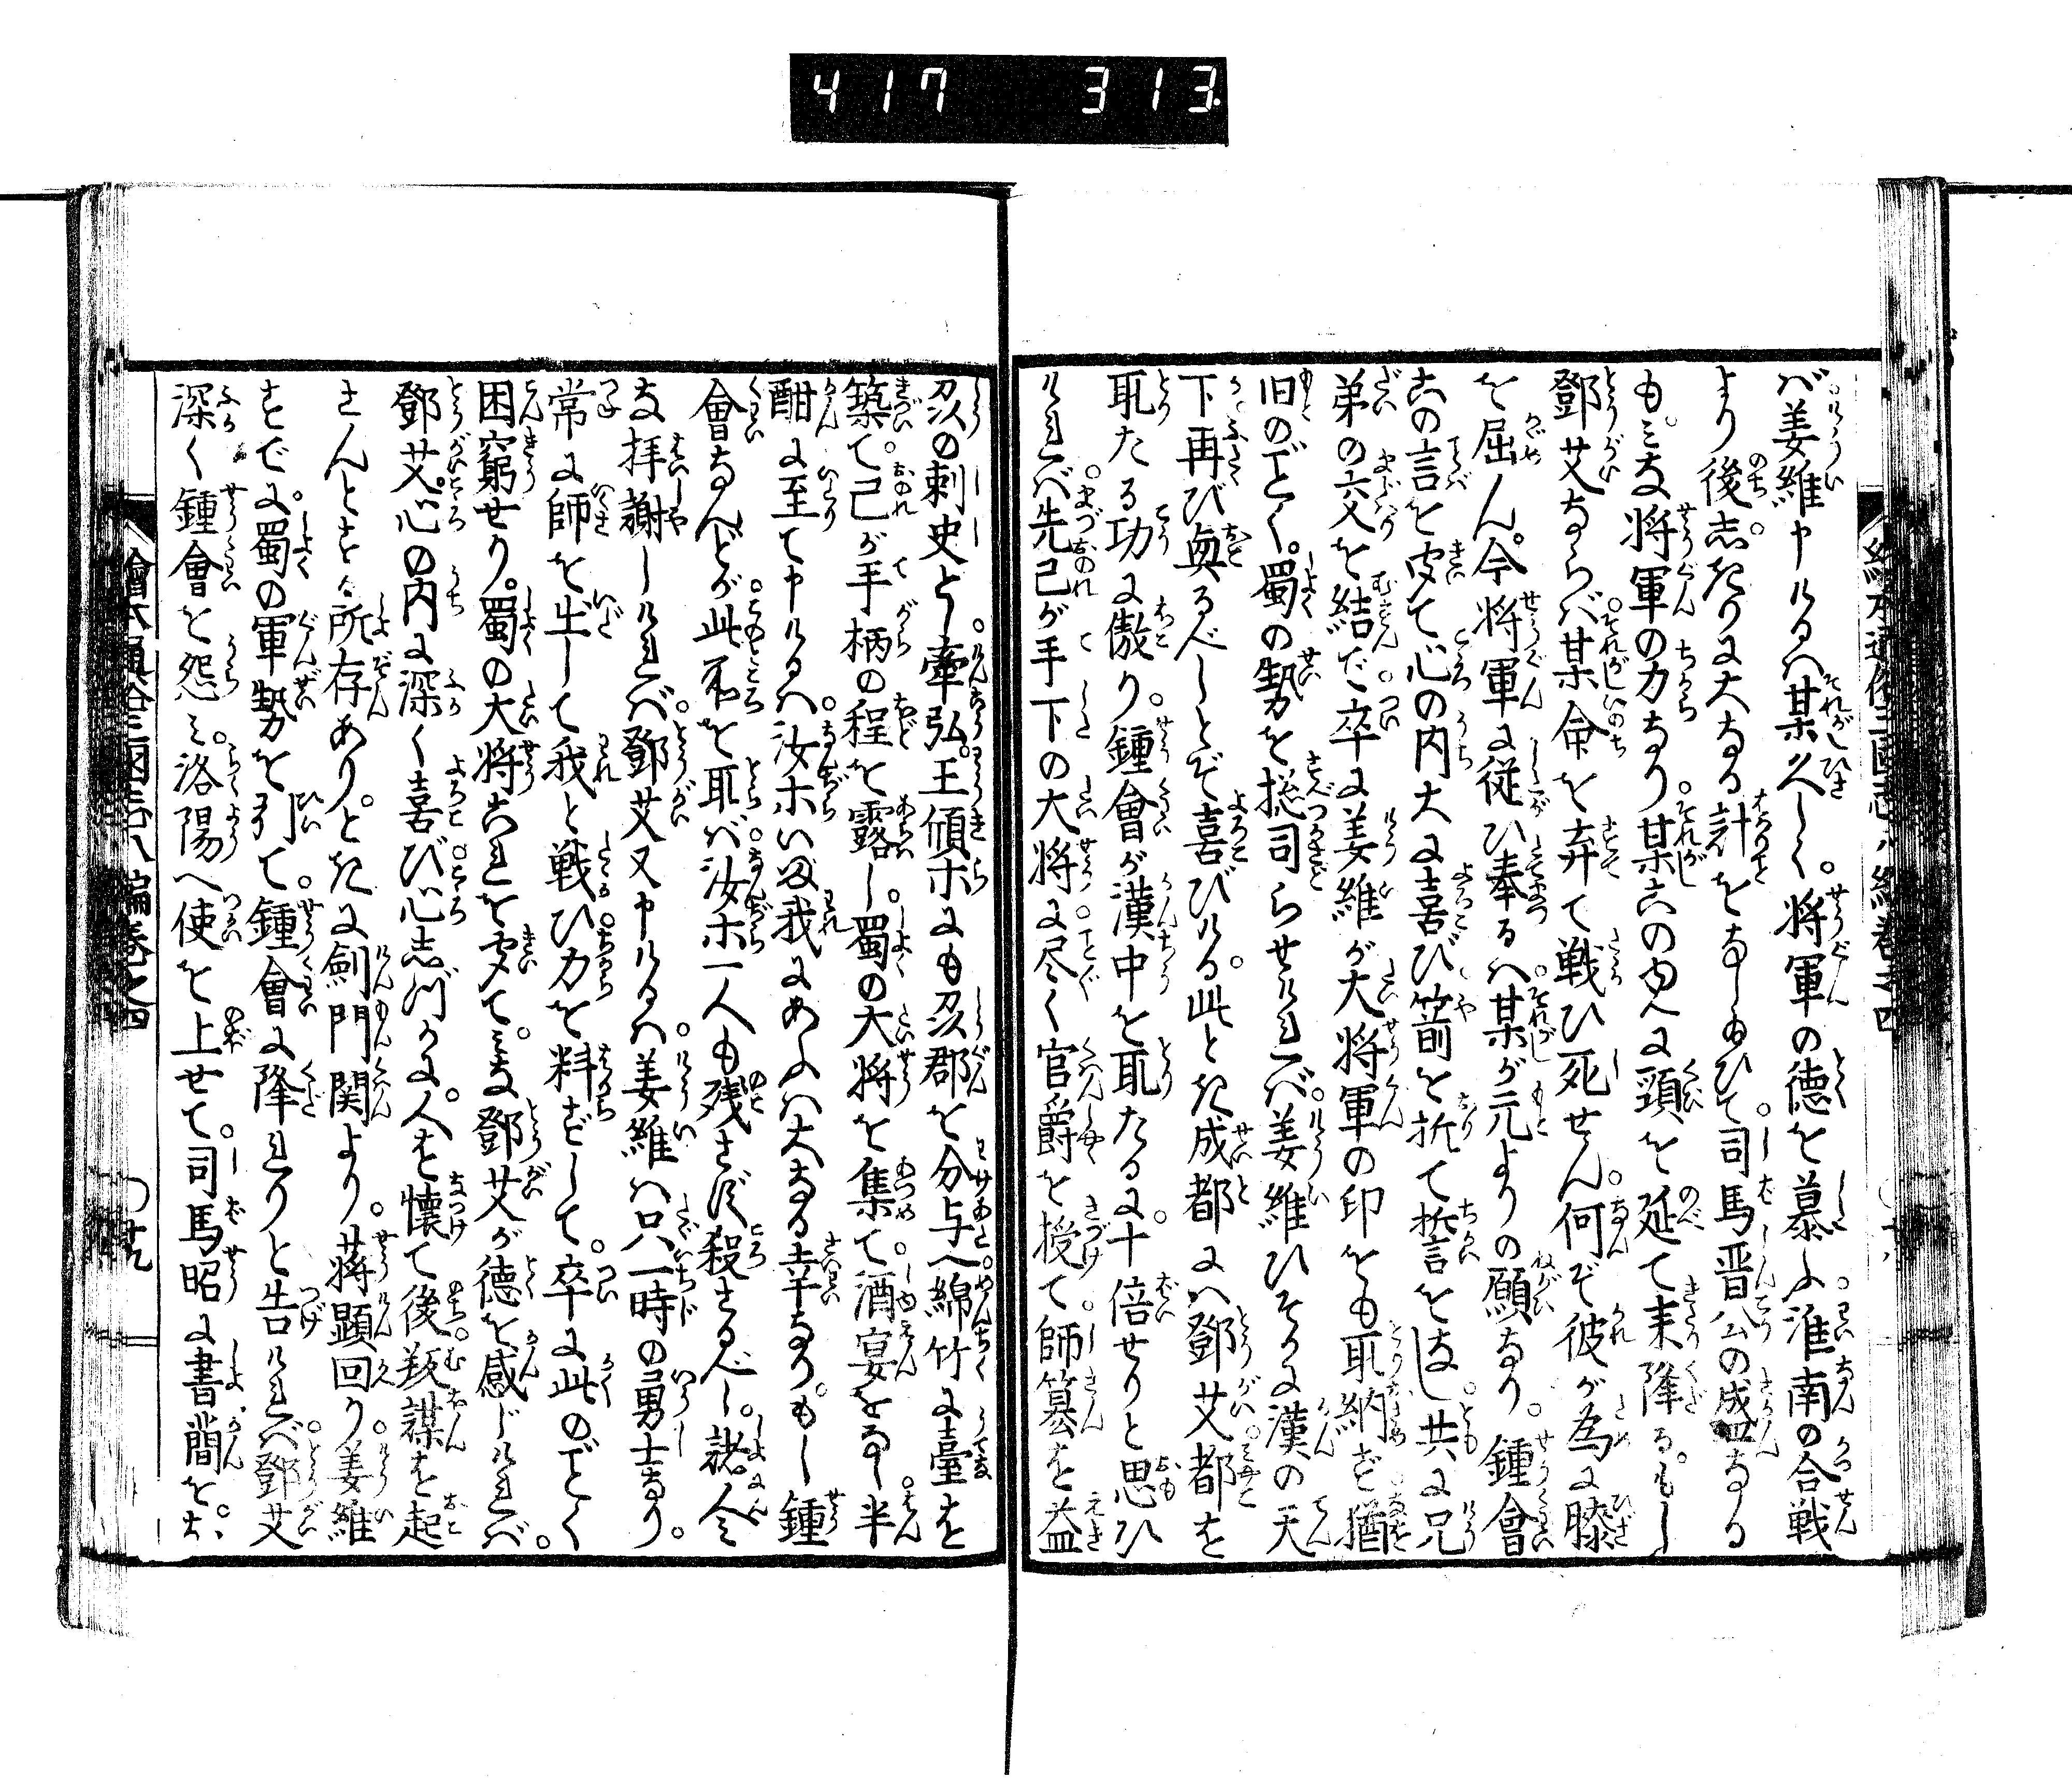 417 313
ば姜維申けるハ某久しく。将軍の徳を慕ふ淮南の合戦
より後。志きりに大なる計をなし給ひて司馬晋公の盛なる
も。ミな将軍の力なり某此のゆへに頸を延て来降る。もし
鄧艾ならバ某命を弃て戦ひ死せん何ぞ彼が為に膝
を屈ん。今将軍に従ひ奉るハ某が元よりの願なり。鍾會
此の言を聞て心の内大に喜び箭を折て誓をなし共に兄
弟の交を結で卒に姜維が大将軍の印をも取納ず猶
旧のごとく。蜀の勢を摠司らせけれバ。姜維ひそかに漢の天
下再び興るべしとぞ喜びける。此とき成都にハ鄧艾都を
取たる功に傲り。鍾會が漢中を取たるに。十倍せりと思ひ
けれバ先己が手下の大将に尽く官爵を授て師簒を益
州の刺史とし牽弘。王頎ホにも州郡を分与へ綿竹に臺を
築て己が手柄の程を露し。蜀の大将を集て酒宴をなし半
酣に至て申けるハ。汝ホいま我にあふハ大なる幸なり。もし鍾
會なんどが此所を取バ汝ホ一人も残さず殺さるべし。諸人ミ
な拝謝しけれバ鄧艾又申けるハ。姜維ハ只一時の勇士なり。
常に師を出して我と戦ひ力を料ずして。卒に此のごとく
困窮せり。蜀の大将これを聞て。ミな鄧艾が徳を感じけれバ。
鄧艾。心の内に深く喜び心志づかに。人を懐て後。叛謀を起
さんとする所存あり。ときに劍門関より。蒋顕回り。姜維
すでに。蜀の軍勢を引て。鍾會に降れりと告けれバ。鄧艾
深く鍾會を怨ミ。洛陽へ使を上せて。司馬昭に書簡を。
繪本通俗三國志八編巻之四